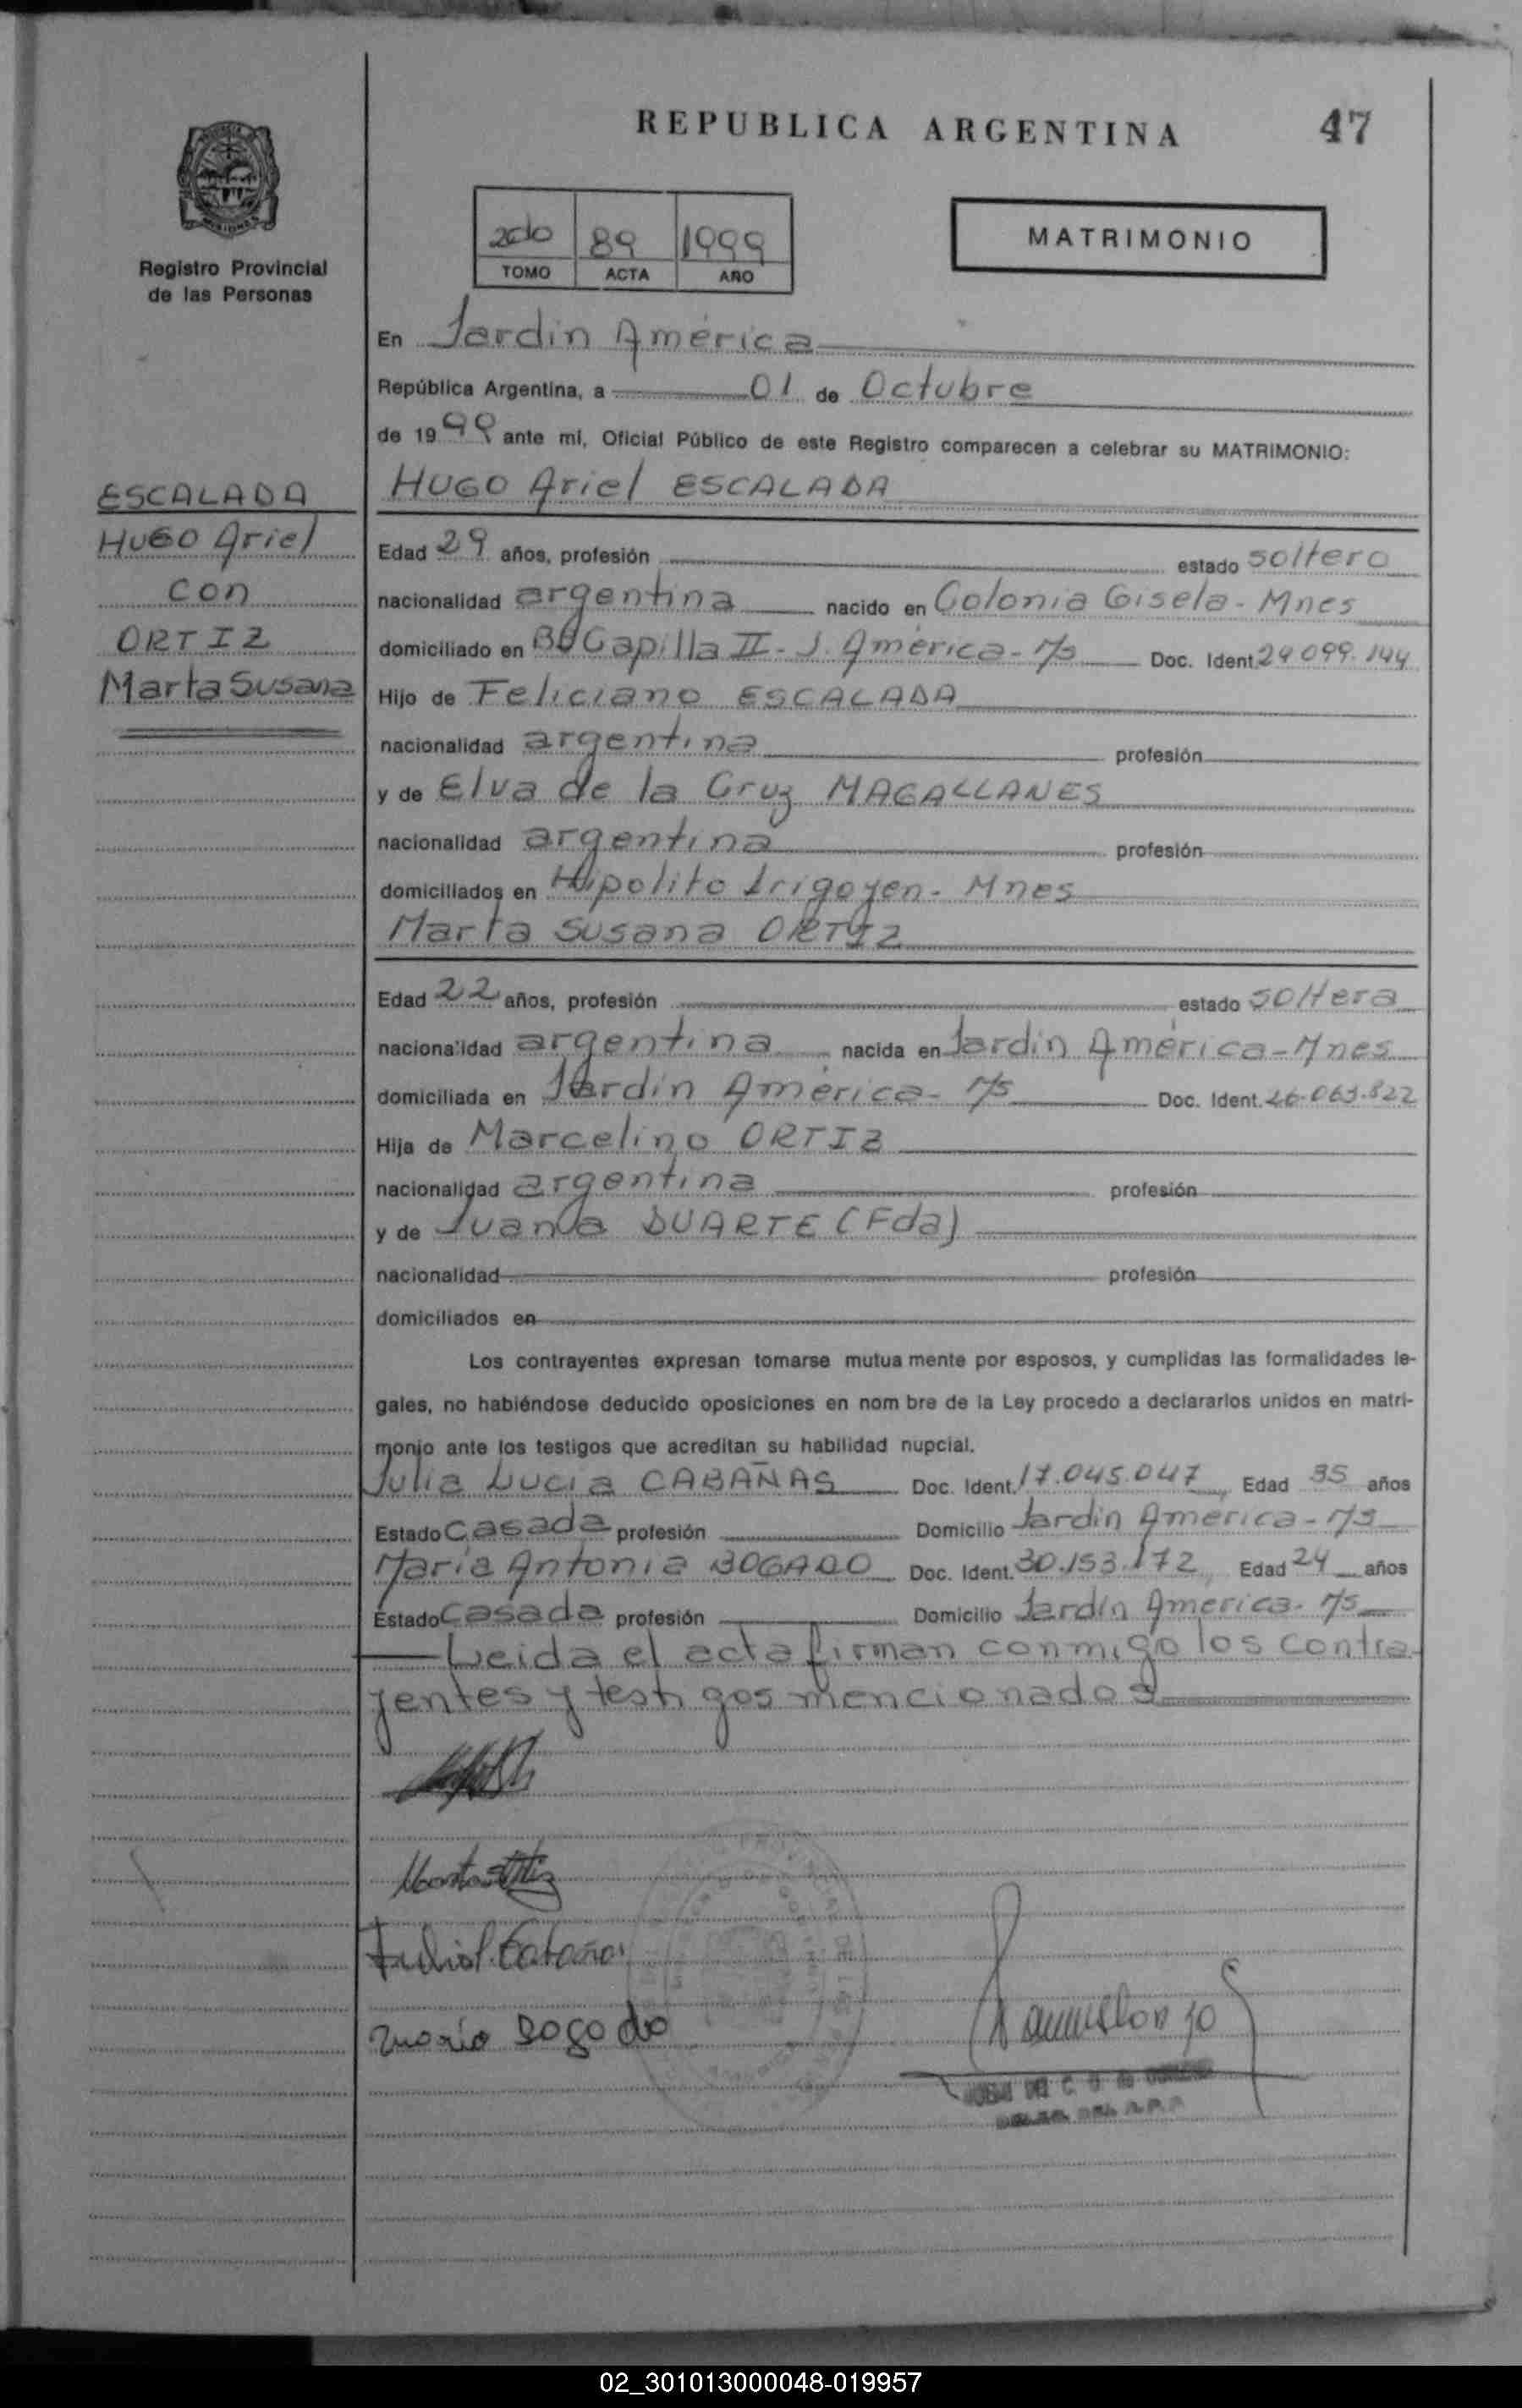 REPUBLICA ARGENTINA 47
2do 89 1999
TOMO ACTA AÑO
MATRIMONIO
Registro Provincial
de las Personas
En Jardin América
República Argentina, a 01 de Octubre
de 1999 ante mi, Oficial Público de este Registro comparecen a celebrar su MATRIMONIO:
ESCALADA
Hugo Ariel
con
ORTIZ
Marta Susana
HUGO Ariel ESCALADA
Edad 29 años, profesión estado soltero
nacionalidad argentina nacido en Colonia Gisela - Mnes
domiciliado en Bº Capilla II - J. América - M/s Doc. Ident. 24.099.144
Hijo de Feliciano ESCALADA
nacionalidad argentina profesión
y de Elva de la Cruz MAGALLANES
nacionalidad argentina profesión
domiciliados en Hipolito Irigoyen - Mnes
Marta Susana ORTIZ
Edad 22 años, profesión estado soltera
nacionalidad argentina nacida en Jardin América - Mnes
domiciliada en Jardin América - M/s Doc. Ident. 26.063.822
Hija de Marcelino ORTIZ
nacionalidad argentina profesión
y de Juana DUARTE (Fda)
nacionalidad profesión
domiciliados en
Los contrayentes expresan tomarse mutua mente por esposos, y cumplidas las formalidades le-
gales, no habiéndose deducido oposiciones en nom bre de la Ley procedo a declararlos unidos en matri-
monio ante los testigos que acreditan su habilidad nupcial.
Julia Lucia CABAÑAS Doc. Ident. 17.045.047 Edad 35 años
Estado casada profesión Domicilio Jardin América - M/s
Maria Antonia BOGADO Doc. Ident. 30.153.172 Edad 24 años
Estado casada profesión Domicilio Jardin America - M/s
Leida el acta firman conmigo los contra-
yentes y testigos mencionados
Marta Ortiz
Julia L. Cabañas
Maria Bogado
02_301013000048-019957